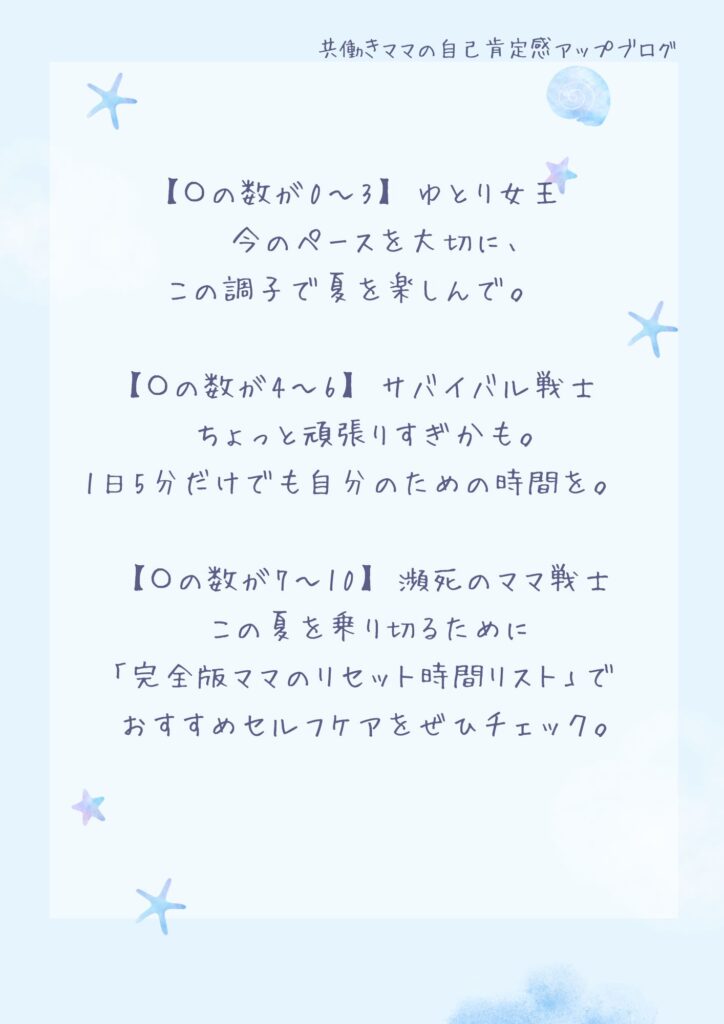 共働きママの自己肯定感アップブログ
【〇の数が0～3】 ゆとり女王
今のペースを大切に、
この調子で夏を楽しんで。
【〇の数が4～6】 サバイバル戦士
ちょっと頑張りすぎかも。
1日5分だけでも自分のための時間を。
【〇の数が7～10】 瀕死のママ戦士
この夏を乗り切るために
「完全版ママのリセット時間リスト」で
おすすめセルフケアをぜひチェック。